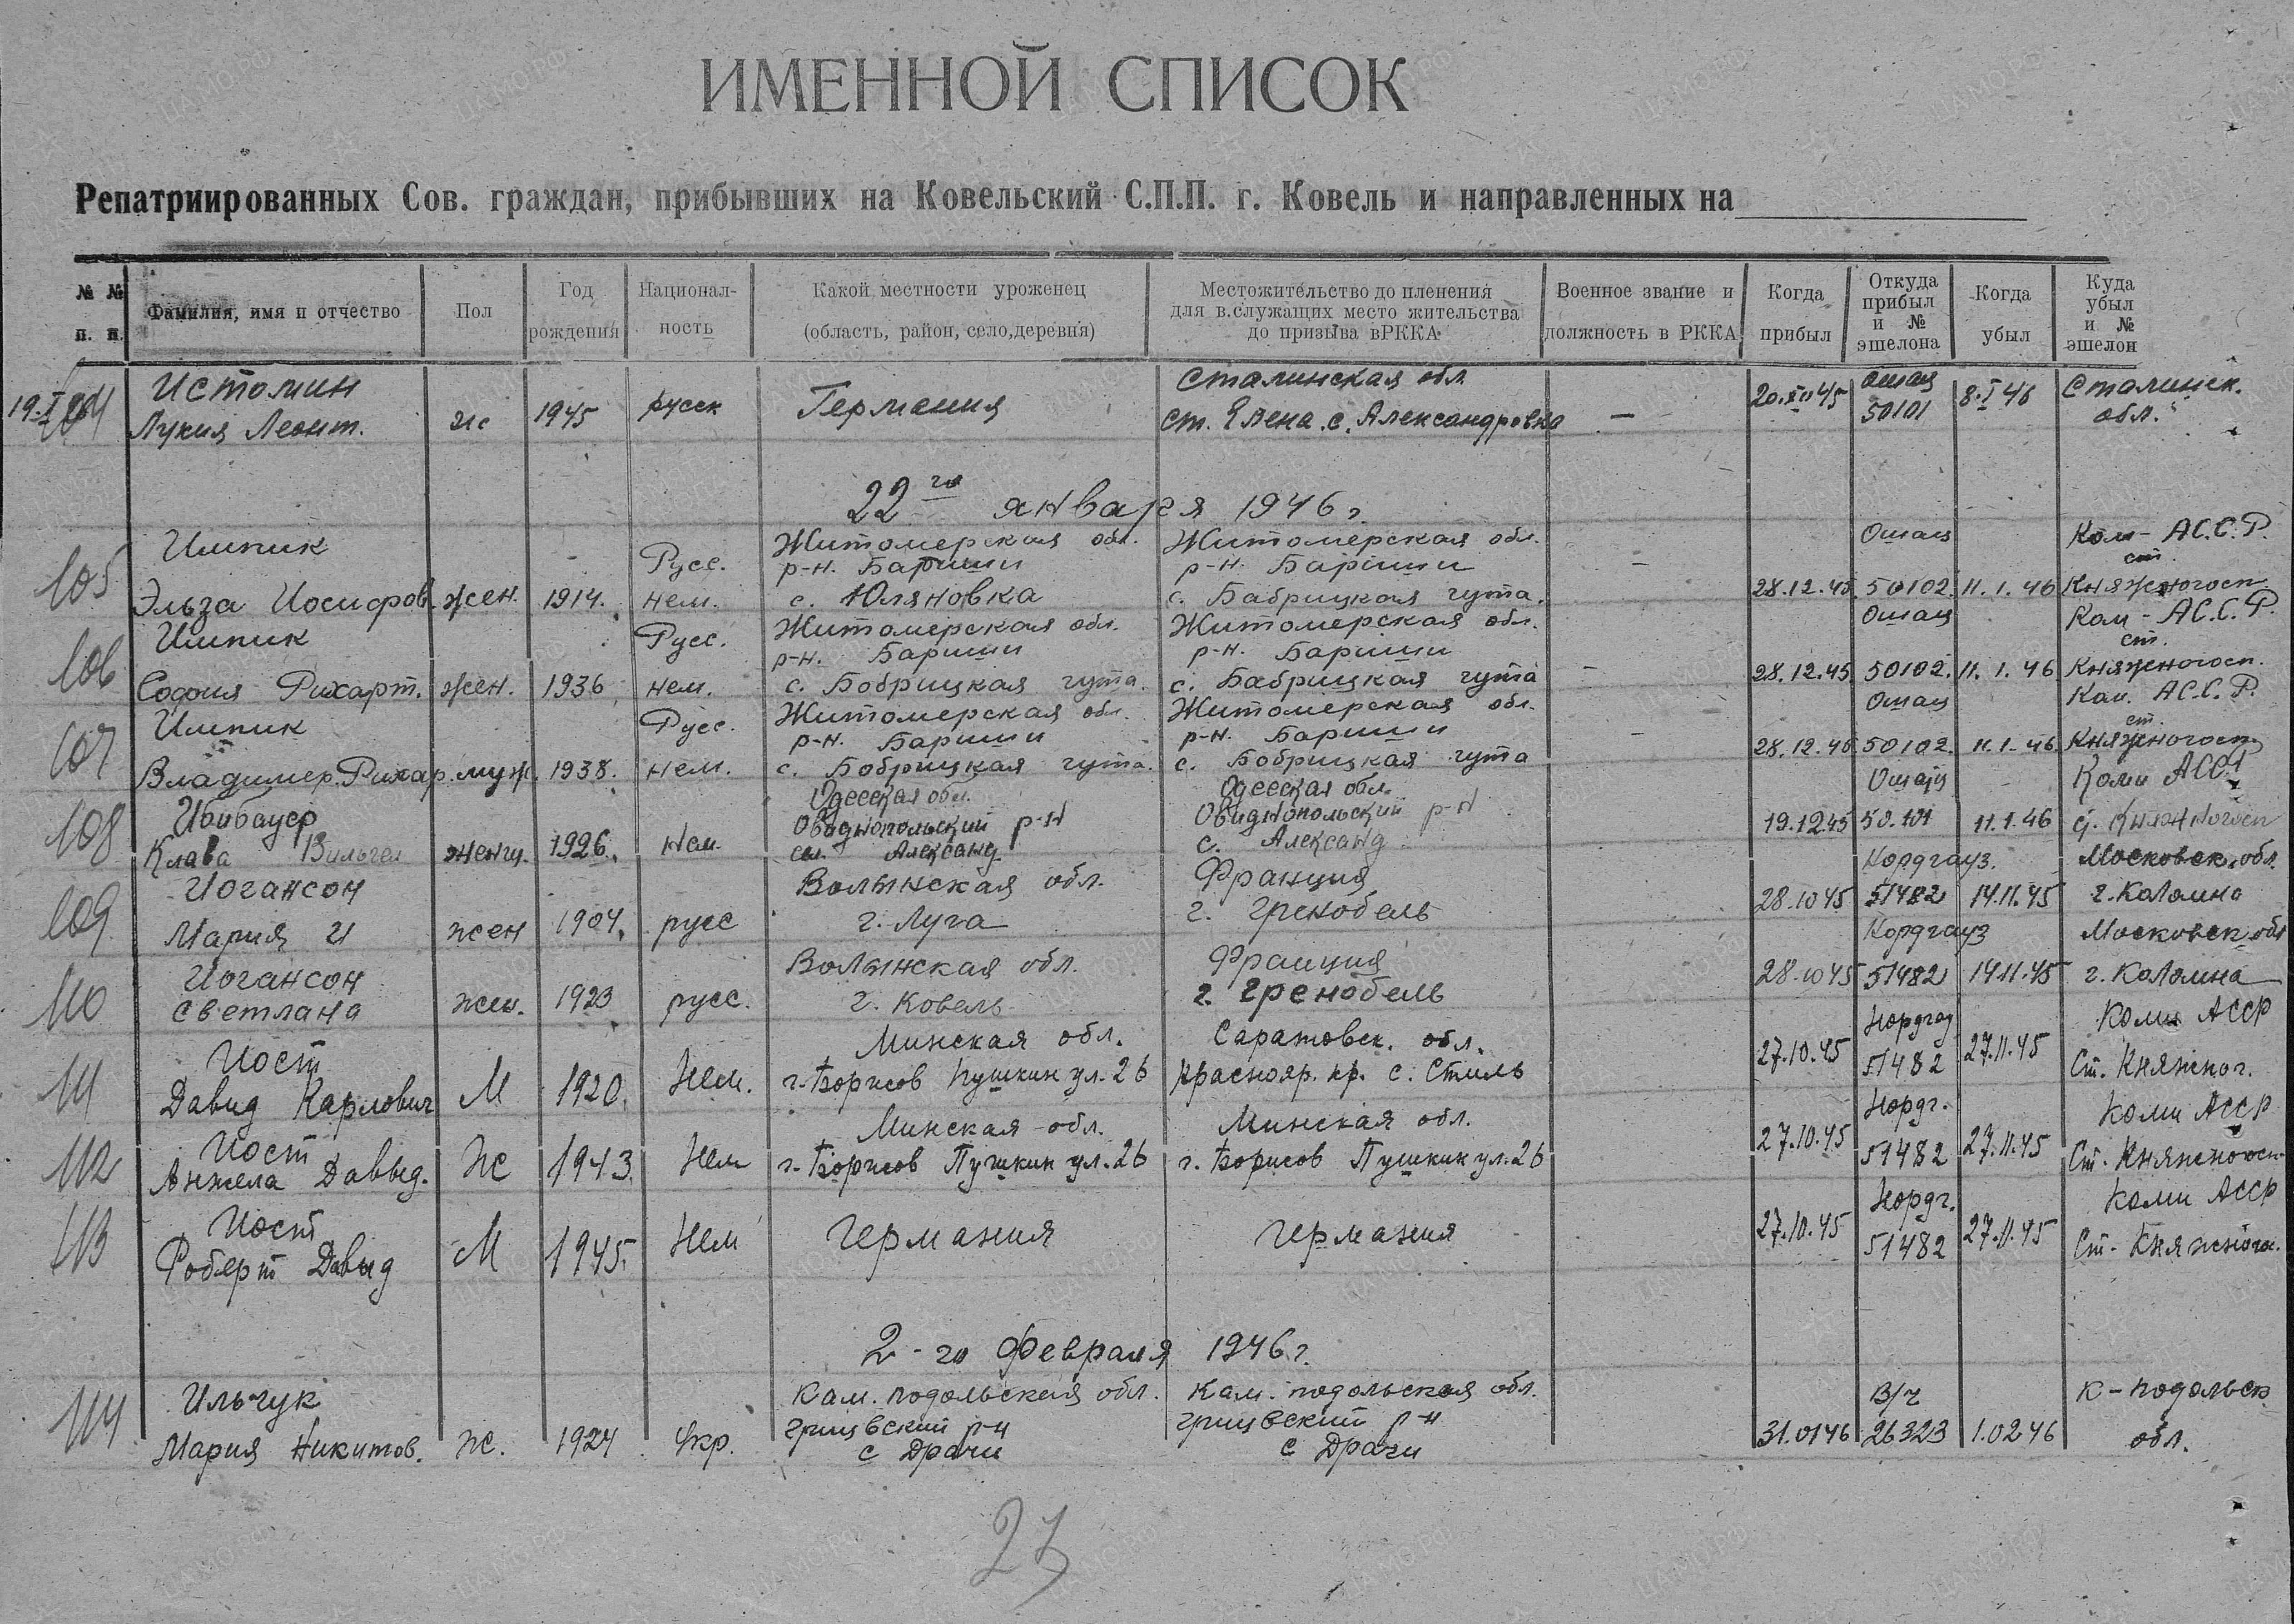 ИМЕННОЙ СПИСОК
Репатриированных Сов. граждан, прибывших на Ковельский С.П.П. г. Ковель и направленных на
№ № п. п. Фамилия, имя и отчество Пол Год рождения Национальность Какой местности уроженец (область, район, село, деревня) Местожительство до пленения для в.служащих место жительства до призыва в РККА Военное звание и должность в РККА Когда прибыл Откуда прибыл и № эшелона Когда убыл Куда убыл и № эшелон
Истомин Сталинская обл. Ошац Сталинск.
19.I 104 Лукия Леонт. ж 1945 русск Германия ст. Елена с. Александровка — 20.XII 45 50101 8.I 46 обл.
22го января 1946 г.
Импик Русс. Житомерская обл. Житомерская обл. Ошац Ком - АС.С.Р.
р-н. Бараши р-н. Бараши - ст.
105 Эльза Иосифов. жен. 1914. нем. с. Юляновка с. Бабрицкая гута. 28.12.45. 50102. 11.1.46 Княженогосп.
Импик Русс. Житомерская обл. Житомерская обл. Ошац Ком - АС.С.Р.
р-н. Бариши р-н. Бариши - ст.
106 София Рихарт. жен. 1936 нем. с. Бобрицкая гута. с. Бабрицкая гута 28.12.45. 50102. 11.1.46 Княженогосп.
Импик Русс. Житомерская обл. Житомерская обл. Ошац Ком. АС.С.Р.
р-н. Бариши р-н. Бариши - ст.
107 Владимер. Рихар. муж. 1938. нем. с. Бобрицкая гута. с. Бобрицкая гута 28.12.45 50102. 11.1-46 Княжногосп.
Ибибауер Одесская обл. Одесская обл. Ошац Коми АССР
Овиднопольский р-н Овиднопольский р-н
108 Клава Вильгел женщ. 1926. Нем. с. Александ. с. Александ 19.12.45 50.101 11.1.46 с. Княжногосп
Иогансон Волынская обл. Франция Нордгауз. Московск. обл.
109 Мария И жен 1904. русс г. Луга г. Гренобель 28.10 45 51482 14.11.45 г. Коломна
Иогансон Волынская обл. Франция Нордгауз Московск обл
110 Светлана жен. 1923 русс. г. Ковель г. Гренобель 28.10 45 51482 14.11.45 г. Коломна
Иост Минская обл. Саратовск. обл. Нордгау Коми АССР
111 Давид Карлович М 1920. Нем. г. Борисов Пушкин ул. 26 Краснояр. кр. с. Сталь 27.10.45 51482 27.11.45 Ст. Княжног.
Иост Минская обл. Минская обл. Нордг. Коми АССР
112 Анжела Давыд. Ж 1943. Нем г. Борисов Пушкин ул. 26 г. Борисов Пушкин ул. 26 27.10.45 51482 27.11.45 Ст. Княжногосп.
Иост Нордг. Коми АССР
113 Роберт Давыд М 1945. Нем Германия Германия 27.10.45 51482 27.11.45 Ст. Княжногос.
2-го Февраля 1946 г.
Ильчук Кам. подольская обл. Кам. подольская обл. В/ч К-подольск
грицвский р-н грицвский р-н
114 Мария Никитов. ж. 1924 Укр. с Драчи с Драчи 31.0146 26323 1.0246 обл.
27